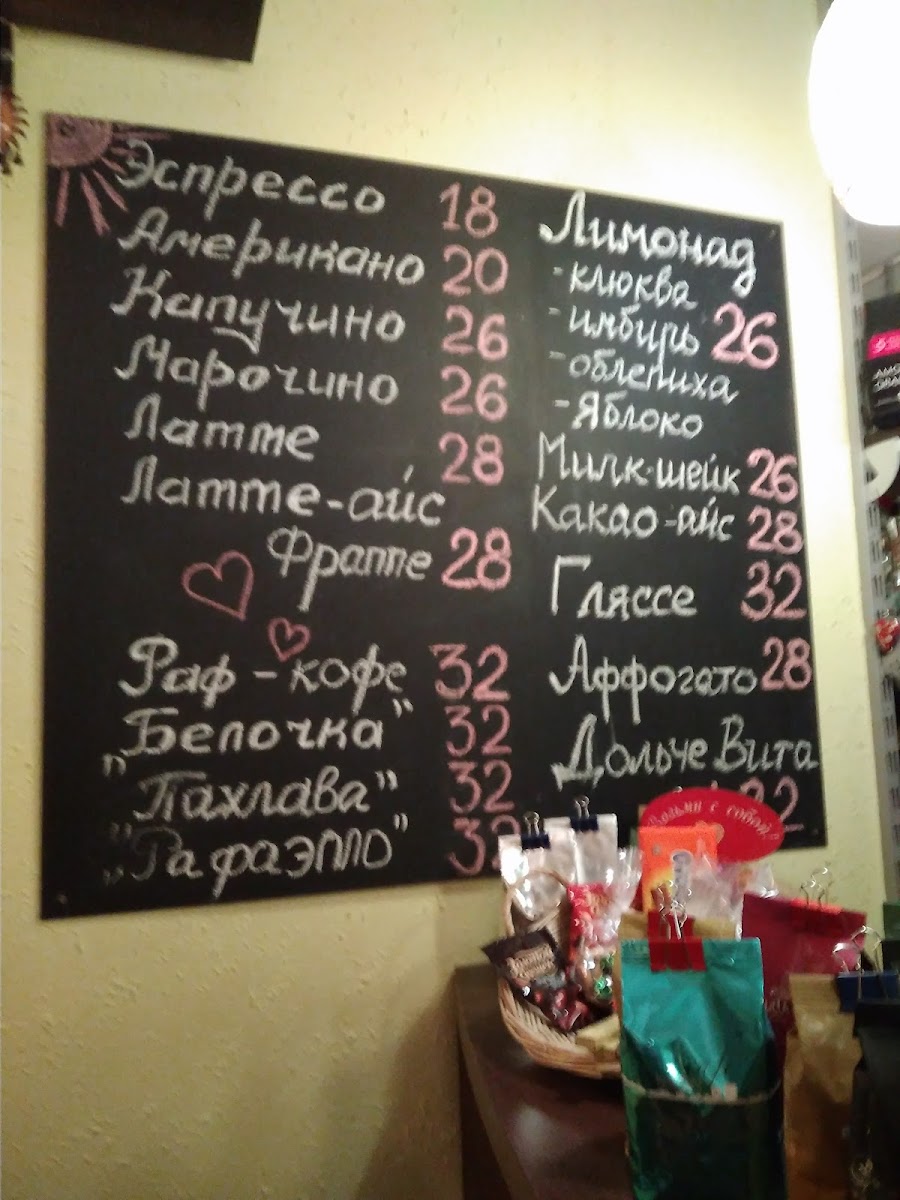 Эспрессо 18
Американо 20
Капучино 26
Марочино 26
Латте 28
Латте-айс
Фраппе 28
Раф-кофе 32
"Белочка" 32
"Пахлава" 32
"Рафаэлло" 32
Лимонад
- клюква
- имбирь 26
- облепиха
- Яблоко
Милк-шейк 26
Какао-айс 28
Гляссе 32
Аффогато 28
Дольче Вита
32
Возьми с собой!